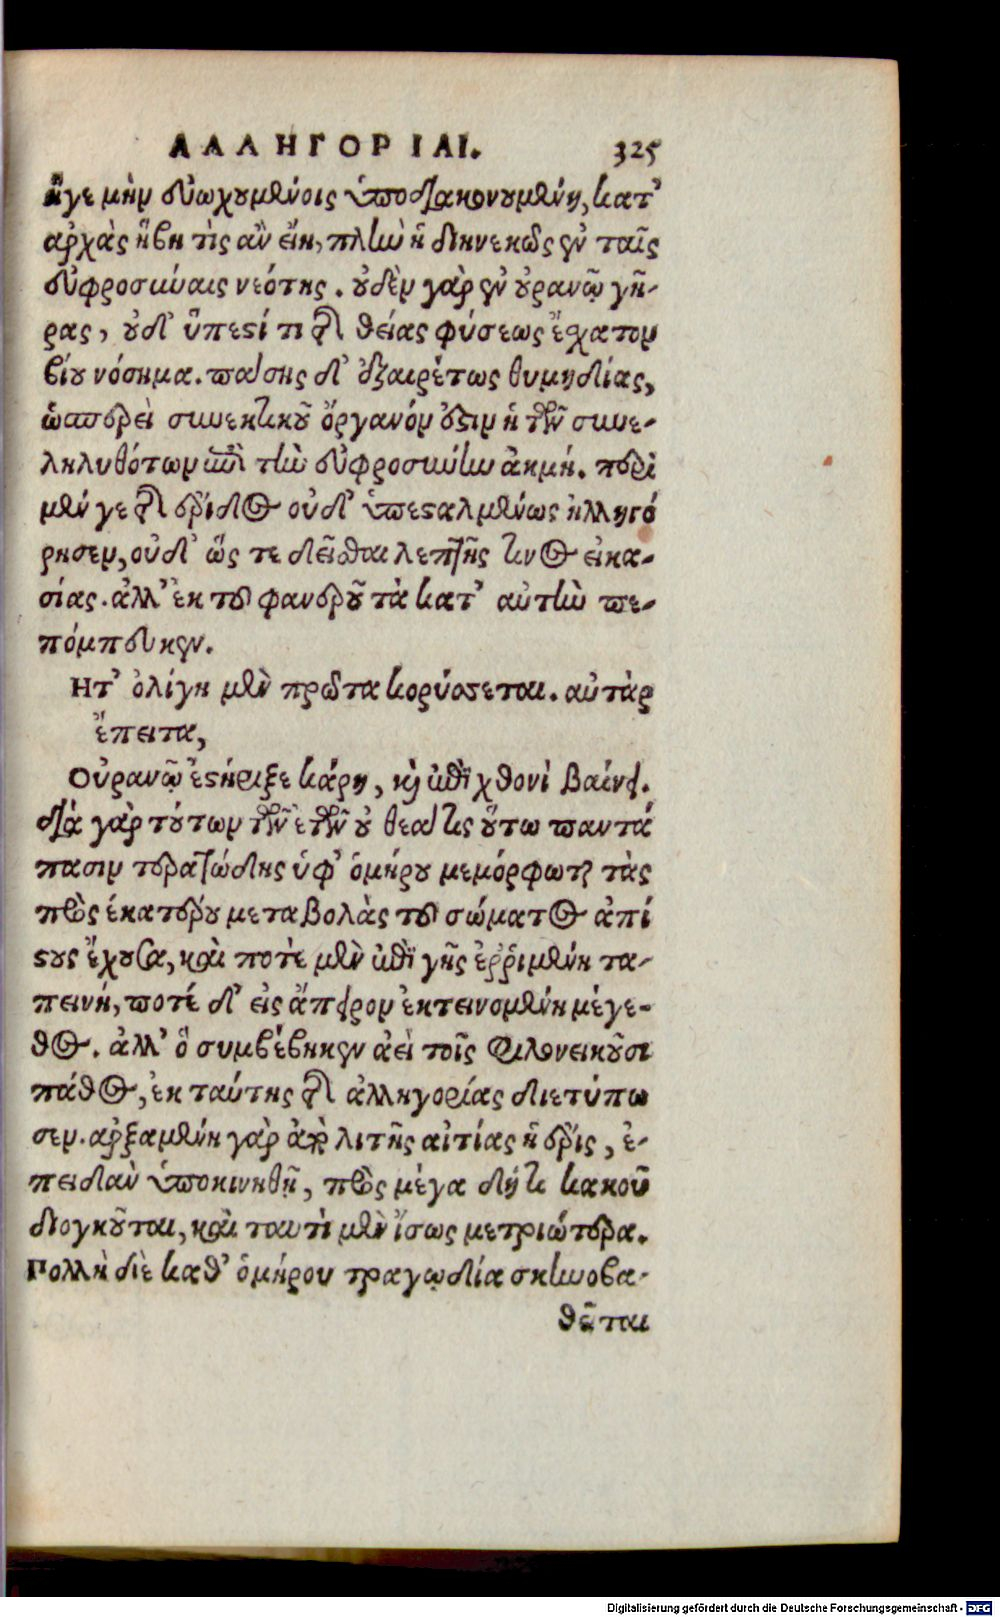 ΑΛΛΗΓΟΡΙΑΙ. 325
ἥγε μὴν εὐωχουμένοις ὑποδιακονουμένη, κατ'
ἀρχὰς ἥβη τὶς ἂν εἴη, πλὴν ἡ διηνεκῶς ἐν ταῖς
εὐφροσύναις νεότης. οὐδὲν γὰρ ἐν οὐρανῷ γῆ-
ρας, οὐδ' ὕπεστί τι τῆς θείας φύσεως ἔσχατον
βίου νόσημα. πάσης δ' ἐξαιρέτως θυμηδίας,
ὡσπερεὶ συνεκτικοῦ ὄργανόν ἐστιν ἡ τῶν συνε-
ληλυθότων ἐπὶ τὴν εὐφροσύνην ἀκμή. περὶ
μέν γε τῆς ἔριδος οὐδ' ὑπεσταλμένως ἠλληγό
ρησεν, οὐδ' ὥς τε δεῖσθαι λεπτῆς τινος εἰκα-
σίας. ἀλλ' ἐκ τοῦ φανεροῦ τὰ κατ' αὐτὴν πε-
πόμπευκεν.
Ητ' ὀλίγη μὲν πρῶτα κορύσσεται. αὐτὰρ
ἔπειτα,
Οὐρανῷ ἐστήριξε κάρη, καὶ ἐπὶ χθονὶ βαίνει.
διὰ γὰρ τούτων τῶν ἐτῶν οὐ θεά τις οὕτω παντά
πασιν τερατώδης ὑφ' ὁμήρου μεμόρφωται τὰς
πρὸς ἑκατέρου μεταβολὰς τοῦ σώματος ἀπί
στους ἔχουσα, καὶ ποτὲ μὲν ἐπὶ γῆς ἐρῥιμένη τα-
πεινή, ποτέ δ' εἰς ἄπειρον ἐκτεινομένη μέγε-
θος. ἀλλ' ὃ συμβέβηκεν ἀεὶ τοῖς φιλονεικοῦσι
πάθος, ἐκ ταύτης τῆς ἀλληγορίας διετύπω
σεν. ἀρξαμένη γὰρ ἀπὸ λιτῆς αἰτίας ἡ ἔρις, ἐ-
πειδὰν ὑποκινηθῇ, πρὸς μέγα δή τι κακοῦ
διογκοῦται, καὶ ταυτὶ μὲν ἴσως μετριώτερα.
Πολλὴ διὲ καθ' ὁμήρου τραγῳδία σκηνοβα-
θεῖται
Digitalisierung gefördert durch die Deutsche Forschungsgemeinschaft - DFG